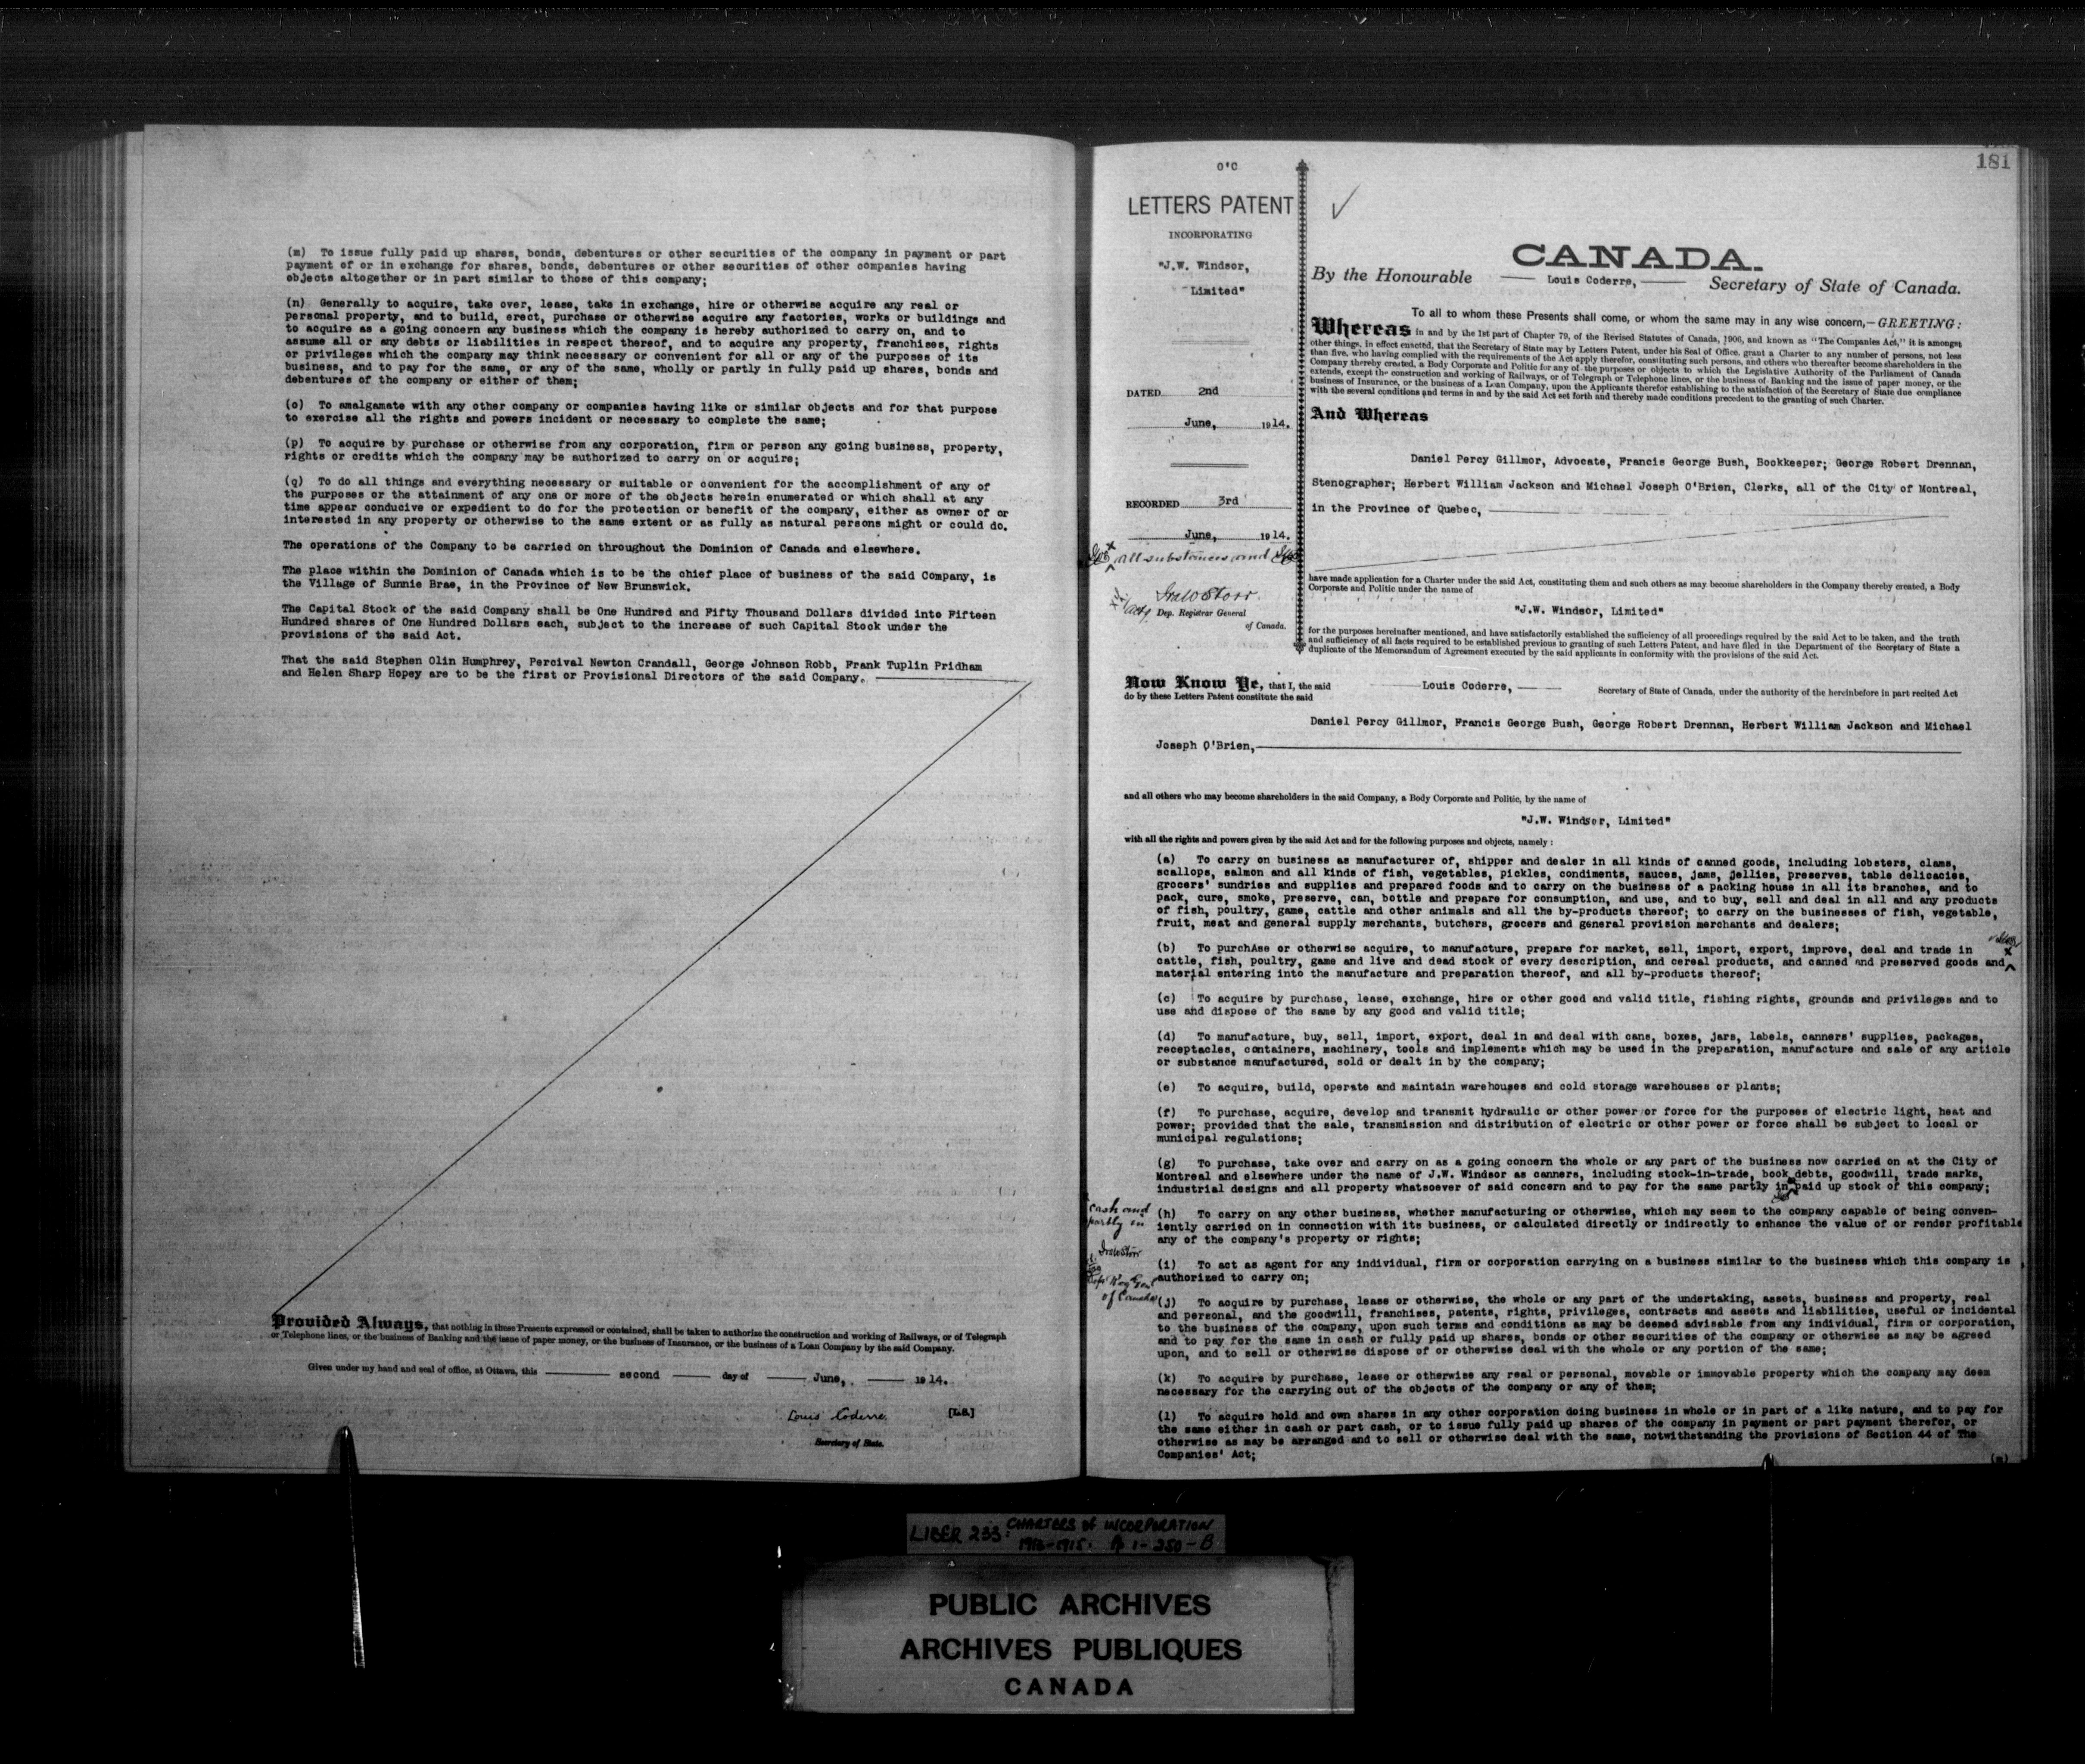 (m) To issue fully paid up shares, bonds, debentures or other securities of the company in payment or part
payment of or in exchange for shares, bonds, debentures or other securities of other companies having
objects altogether or in part similar to those of this company;
(n) Generally to acquire, take over, lease, take in exchange, hire or otherwise acquire any real or
personal property, and to build, erect, purchase or otherwise acquire any factories, works or buildings and
to acquire as a going concern any business which the company is hereby authorized to carry on, and to
assume all or any debts or liabilities in respect thereof, and to acquire any property, franchises, rights
or privileges which the company may think necessary or convenient for all or any of the purposes of its
business, and to pay for the same, or any of the same, wholly or partly in fully paid up shares, bonds and
debentures of the company or either of them;
(o) To amalgamate with any other company or companies having like or similar objects and for that purpose
to exercise all the rights and powers incident or necessary to complete the same;
(p) To acquire by purchase or otherwise from any corporation, firm or person any going business, property,
rights or credits which the company may be authorized to carry on or acquire;
(q) To do all things and everything necessary or suitable or convenient for the accomplishment of any of
the purposes or the attainment of any one or more of the objects herein enumerated or which shall at any
time appear conducive or expedient to do for the protection or benefit of the company, either as owner of or
interested in any property or otherwise to the same extent or as fully as natural persons might or could do.
The operations of the Company to be carried on throughout the Dominion of Canada and elsewhere.
The place within the Dominion of Canada which is to be the chief place of business of the said Company, is
the Village of Sunnie Brae, in the Province of New Brunswick.
The Capital Stock of the said Company shall be One Hundred and Fifty Thousand Dollars divided into Fifteen
Hundred shares of One Hundred Dollars each, subject to the increase of such Capital Stock under the
provisions of the said Act.
That the said Stephen Olin Humphrey, Percival Newton Crandall, George Johnson Robb, Frank Tuplin Pridham
and Helen Sharp Hopey are to be the first or Provisional Directors of the said Company.
Provided Always, that nothing in these Presents expressed or contained, shall be taken to authorize the construction and working of Railways, or of Telegraph
or Telephone lines, or the business of Banking and the issue of paper money, or the business of Insurance, or the business of a Loan Company by the said Company.
Given under my hand and seal of office, at Ottawa, this second day of June, 1914.
Louis Coderre, [L.S.]
Secretary of State.
181
O'C
LETTERS PATENT
INCORPORATING
"J.W. Windsor,
Limited"
DATED 2nd
June, 1914.
RECORDED 3rd
June, 1914.
all substances and
Ira W Storr
Actg Dep. Registrar General
of Canada.
CANADA.
By the Honourable Louis Coderre, Secretary of State of Canada.
To all to whom these Presents shall come, or whom the same may in any wise concern,—GREETING:
Whereas in and by the 1st part of Chapter 79, of the Revised Statutes of Canada, 1906, and known as "The Companies Act," it is amongst
other things, in effect enacted, that the Secretary of State may by Letters Patent, under his Seal of Office, grant a Charter to any number of persons, not less
than five, who having complied with the requirements of the Act apply therefor, constituting such persons, and others who thereafter become shareholders in the
Company thereby created, a Body Corporate and Politic for any of the purposes or objects to which the Legislative Authority of the Parliament of Canada
extends, except the construction and working of Railways, or of Telegraph or Telephone lines, or the business of Banking and the issue of paper money, or the
business of Insurance, or the business of a Loan Company, upon the Applicants therefor establishing to the satisfaction of the Secretary of State due compliance
with the several conditions and terms in and by the said Act set forth and thereby made conditions precedent to the granting of such Charter.
And Whereas
Daniel Percy Gillmor, Advocate, Francis George Bush, Bookkeeper; George Robert Drennan,
Stenographer; Herbert William Jackson and Michael Joseph O'Brien, Clerks, all of the City of Montreal,
in the Province of Quebec,
have made application for a Charter under the said Act, constituting them and such others as may become shareholders in the Company thereby created, a Body
Corporate and Politic under the name of
"J.W. Windsor, Limited"
for the purposes hereinafter mentioned, and have satisfactorily established the sufficiency of all proceedings required by the said Act to be taken, and the truth
and sufficiency of all facts required to be established previous to granting of such Letters Patent, and have filed in the Department of the Secretary of State a
duplicate of the Memorandum of Agreement executed by the said applicants in conformity with the provisions of the said Act.
Now Know Ye, that I, the said Louis Coderre, Secretary of State of Canada, under the authority of the hereinbefore in part recited Act
do by these Letters Patent constitute the said
Daniel Percy Gillmor, Francis George Bush, George Robert Drennan, Herbert William Jackson and Michael
Joseph O'Brien,
and all others who may become shareholders in the said Company, a Body Corporate and Politic, by the name of
"J.W. Windsor, Limited"
with all the rights and powers given by the said Act and for the following purposes and objects, namely:
(a) To carry on business as manufacturer of, shipper and dealer in all kinds of canned goods, including lobsters, clams,
scallops, salmon and all kinds of fish, vegetables, pickles, condiments, sauces, jams, jellies, preserves, table delicacies,
grocers' sundries and supplies and prepared foods and to carry on the business of a packing house in all its branches, and to
pack, cure, smoke, preserve, can, bottle and prepare for consumption, and use, and to buy, sell and deal in all and any products
of fish, poultry, game, cattle and other animals and all the by-products thereof; to carry on the businesses of fish, vegetable,
fruit, meat and general supply merchants, butchers, grocers and general provision merchants and dealers;
(b) To purchAse or otherwise acquire, to manufacture, prepare for market, sell, import, export, improve, deal and trade in
cattle, fish, poultry, game and live and dead stock of every description, and cereal products, and canned and preserved goods and
material entering into the manufacture and preparation thereof, and all by-products thereof;
(c) To acquire by purchase, lease, exchange, hire or other good and valid title, fishing rights, grounds and privileges and to
use and dispose of the same by any good and valid title;
(d) To manufacture, buy, sell, import, export, deal in and deal with cans, boxes, jars, labels, canners' supplies, packages,
receptacles, containers, machinery, tools and implements which may be used in the preparation, manufacture and sale of any article
or substance manufactured, sold or dealt in by the company;
(e) To acquire, build, operate and maintain warehouses and cold storage warehouses or plants;
(f) To purchase, acquire, develop and transmit hydraulic or other power or force for the purposes of electric light, heat and
power; provided that the sale, transmission and distribution of electric or other power or force shall be subject to local or
municipal regulations;
(g) To purchase, take over and carry on as a going concern the whole or any part of the business now carried on at the City of
Montreal and elsewhere under the name of J.W. Windsor as canners, including stock-in-trade, book debts, goodwill, trade marks,
industrial designs and all property whatsoever of said concern and to pay for the same partly in paid up stock of this company;
cash and
partly in
Ira W Storr
Dep Reg Genl
of Canada
(h) To carry on any other business, whether manufacturing or otherwise, which may seem to the company capable of being conven-
iently carried on in connection with its business, or calculated directly or indirectly to enhance the value of or render profitable
any of the company's property or rights;
(i) To act as agent for any individual, firm or corporation carrying on a business similar to the business which this company is
authorized to carry on;
(j) To acquire by purchase, lease or otherwise, the whole or any part of the undertaking, assets, business and property, real
and personal, and the goodwill, franchises, patents, rights, privileges, contracts and assets and liabilities, useful or incidental
to the business of the company, upon such terms and conditions as may be deemed advisable from any individual, firm or corporation,
and to pay for the same in cash or fully paid up shares, bonds or other securities of the company or otherwise as may be agreed
upon, and to sell or otherwise dispose of or otherwise deal with the whole or any portion of the same;
(k) To acquire by purchase, lease or otherwise any real or personal, movable or immovable property which the company may deem
necessary for the carrying out of the objects of the company or any of them;
(l) To acquire hold and own shares in any other corporation doing business in whole or in part of a like nature, and to pay for
the same either in cash or part cash, or to issue fully paid up shares of the company in payment or part payment therefor, or
otherwise as may be arranged and to sell or otherwise deal with the same, notwithstanding the provisions of Section 44 of The
Companies' Act;
(m)
LIBER 233: CHARTERS OF INCORPORATION
PUBLIC ARCHIVES
ARCHIVES PUBLIQUES
CANADA